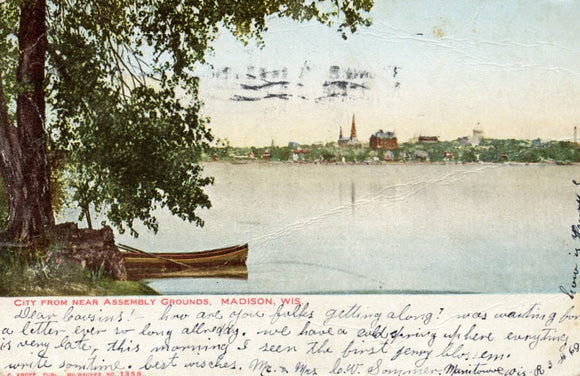 CITY FROM NEAR ASSEMBLY GROUNDS, MADISON, WIS.
Dear Cousins! - how are you folks getting along? was waiting for
a letter ever so long allready. we have a cold spring up here everything
is very late, this morning I seen the first
write somtime. best wisches. Mr & Mrs C. W. Sommer. Manitowoc Wis. R 3
E. C. KROPP, PUBL. MILWAUKEE NO. 1358
how is